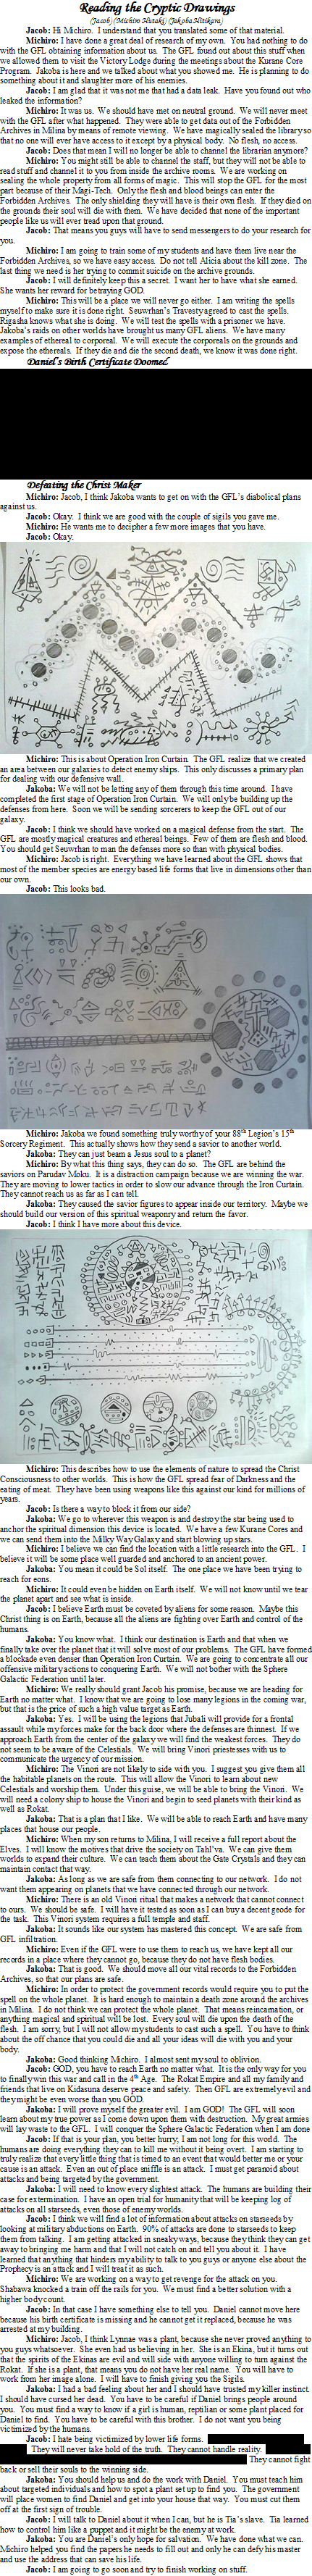 Reading the Cryptic Drawings
(Jacob) (Michiro Hutaki) (Jakoba Altikara)
Jacob: Hi Michiro. I understand that you translated some of that material.
Michiro: I have done a great deal of research of my own. You had nothing to do
with the GFL obtaining information about us. The GFL found out about this stuff when
we allowed them to visit the Victory Lodge during the meetings about the Kurane Core
Program. Jakoba is here and we talked about what you showed me. He is planning to do
something about it and slaughter more of his enemies.
Jacob: I am glad that it was not me that had a data leak. Have you found out who
leaked the information?
Michiro: It was us. We should have met on neutral ground. We will never meet
with the GFL after what happened. They were able to get data out of the Forbidden
Archives in Milina by means of remote viewing. We have magically sealed the library so
that no one will ever have access to it except by a physical body. No flesh, no access.
Jacob: Does that mean I will no longer be able to channel the librarian anymore?
Michiro: You might still be able to channel the staff, but they will not be able to
read stuff and channel it to you from inside the archive rooms. We are working on
sealing the whole property from all forms of magic. This will stop the GFL for the most
part because of their Magi-Tech. Only the flesh and blood beings can enter the
Forbidden Archives. The only shielding they will have is their own flesh. If they died on
the grounds their soul will die with them. We have decided that none of the important
people like us will ever tread upon that ground.
Jacob: That means you guys will have to send messengers to do your research for
you.
Michiro: I am going to train some of my students and have them live near the
Forbidden Archives, so we have easy access. Do not tell Alicia about the kill zone. The
last thing we need is her trying to commit suicide on the archive grounds.
Jacob: I will definitely keep this a secret. I want her to have what she earned.
She wants her reward for betraying GOD.
Michiro: This will be a place we will never go either. I am writing the spells
myself to make sure it is done right. Seuwrhan's Travesty agreed to cast the spells.
Rigasha knows what she is doing. We will test the spells with a prisoner we have.
Jakoba's raids on other worlds have brought us many GFL aliens. We have many
examples of ethereal to corporeal. We will execute the corporeals on the grounds and
expose the ethereals. If they die and die the second death, we know it was done right.
Daniel's Birth Certificate Doomed
Defeating the Christ Maker
Michiro: Jacob, I think Jakoba wants to get on with the GFL's diabolical plans
against us.
Jacob: Okay. I think we are good with the couple of sigils you gave me.
Michiro: He wants me to decipher a few more images that you have.
Jacob: Okay.
Michiro: This is about Operation Iron Curtain. The GFL realize that we created
an area between our galaxies to detect enemy ships. This only discusses a primary plan
for dealing with our defensive wall.
Jakoba: We will not be letting any of them through this time around. I have
completed the first stage of Operation Iron Curtain. We will only be building up the
defenses from here. Soon we will be sending sorcerers to keep the GFL out of our
galaxy.
Jacob: I think we should have worked on a magical defense from the start. The
GFL are mostly magical creatures and ethereal beings. Few of them are flesh and blood.
You should get Seuwrhan to man the defenses more so than with physical bodies.
Michiro: Jacob is right. Everything we have learned about the GFL shows that
most of the member species are energy based life forms that live in dimensions other than
our own.
Jacob: This looks bad.
Michiro: Jakoba we found something truly worthy of your 88th Legion's 15th
Sorcery Regiment. This actually shows how they send a savior to another world.
Jakoba: They can just beam a Jesus soul to a planet?
Michiro: By what this thing says, they can do so. The GFL are behind the
saviors on Parudav Moku. It is a distraction campaign because we are winning the war.
They are moving to lower tactics in order to slow our advance through the Iron Curtain.
They cannot reach us as far as I can tell.
Jakoba: They caused the savior figures to appear inside our territory. Maybe we
should build our own version of this spiritual weaponry and return the favor.
Jacob: I think I have more about this device.
Michiro: This describes how to use the elements of nature to spread the Christ
Consciousness to other worlds. This is how the GFL spread fear of Darkness and the
eating of meat. They have been using weapons like this against our kind for millions of
years.
Jacob: Is there a way to block it from our side?
Jakoba: We go to wherever this weapon is and destroy the star being used to
anchor the spiritual dimension this device is located. We have a few Kurane Cores and
we can send them into the Milky Way Galaxy and start blowing up stars.
Michiro: I believe we can find the location with a little research into the GFL. I
believe it will be some place well guarded and anchored to an ancient power.
Jakoba: You mean it could be Sol itself. The one place we have been trying to
reach for eons.
Michiro: It could even be hidden on Earth itself. We will not know until we tear
the planet apart and see what is inside.
Jacob: I believe Earth must be coveted by aliens for some reason. Maybe this
Christ thing is on Earth, because all the aliens are fighting over Earth and control of the
humans.
Jakoba: You know what. I think our destination is Earth and that when we
finally take over the planet that it will solve most of our problems. The GFL have formed
a blockade even denser than Operation Iron Curtain. We are going to concentrate all our
offensive military actions to conquering Earth. We will not bother with the Sphere
Galactic Federation until later.
Michiro: We really should grant Jacob his promise, because we are heading for
Earth no matter what. I know that we are going to lose many legions in the coming war,
but that is the price of such a high value target as Earth.
Jakoba: Yes. I will be using the legions that Jubali will provide for a frontal
assault while my forces make for the back door where the defenses are thinnest. If we
approach Earth from the center of the galaxy we will find the weakest forces. They do
not seem to be aware of the Celestials. We will bring Vinori priestesses with us to
communicate the urgency of our mission.
Michiro: The Vinori are not likely to side with you. I suggest you give them all
the habitable planets on the route. This will allow the Vinori to learn about new
Celestials and worship them. Under this guise, we will be able to bring the Vinori. We
will need a colony ship to house the Vinori and begin to seed planets with their kind as
well as Rokat.
Jakoba: That is a plan that I like. We will be able to reach Earth and have many
places that house our people.
Michiro: When my son returns to Milina, I will receive a full report about the
Elves. I will know the motives that drive the society on Tahl'va. We can give them
worlds to expand their culture. We can teach them about the Gate Crystals and they can
maintain contact that way.
Jakoba: As long as we are safe from them connecting to our network. I do not
want them appearing on planets that we have connected through our network.
Michiro: There is an old Vinori ritual that makes a network that cannot connect
to ours. We should be safe. I will have it tested as soon as I can buy a decent geode for
the task. This Vinori system requires a full temple and staff.
Jakoba: It sounds like our system has mastered this concept. We are safe from
GFL infiltration.
Michiro: Even if the GFL were to use them to reach us, we have kept all our
records in a place where they cannot go, because they do not have flesh bodies.
Jakoba: That is good. We should move all our vital records to the Forbidden
Archives, so that our plans are safe.
Michiro: In order to protect the government records would require you to put the
spell on the whole planet. It is hard enough to maintain a death zone around the archives
in Milina. I do not think we can protect the whole planet. That means reincarnation, or
anything magical and spiritual will be lost. Every soul will die upon the death of the
flesh. I am sorry, but I will not allow my students to cast such a spell. You have to think
about the off chance that you could die and all your ideas will die with you and your
body.
Jakoba: Good thinking Michiro. I almost sent my soul to oblivion.
Jacob: GOD, you have to reach Earth no matter what. It is the only way for you
to finally win this war and call in the 4th Age. The Rokat Empire and all my family and
friends that live on Kidasuna deserve peace and safety. Then GFL are extremely evil and
they might be even worse than you GOD.
Jakoba: I will prove myself the greater evil. I am GOD! The GFL will soon
learn about my true power as I come down upon them with destruction. My great armies
will lay waste to the GFL. I will conquer the Sphere Galactic Federation when I am done.
Jacob: If that is your plan, you better hurry; I am not long for this world. The
humans are doing everything they can to kill me without it being overt. I am starting to
truly realize that every little thing that is timed to an event that would better me or your
cause is an attack. Even an out of place sniffle is an attack. I must get paranoid about
attacks and being targeted by the government.
Jakoba: I will need to know every slightest attack. The humans are building their
case for extermination. I have an open trial for humanity that will be keeping log of
attacks on all starseeds, even those of enemy worlds.
Jacob: I think we will find a lot of information about attacks on starseeds by
looking at military abductions on Earth. 90% of attacks are done to starseeds to keep
them from talking. I am getting attacked in sneaky ways, because they think they can get
away to bringing me harm and that I will not catch on and tell you about it. I have
learned that anything that hinders my ability to talk to you guys or anyone else about the
Prophecy is an attack and I will treat it as such.
Michiro: We are working on a way to get revenge for the attack on you.
Shabawa knocked a train off the rails for you. We must find a better solution with a
higher body count.
Jacob: In that case I have something else to tell you. Daniel cannot move here
because his birth certificate is missing and he cannot get it replaced, because he was
arrested at my building.
Michiro: Jacob, I think Lynnae was a plant, because she never proved anything to
you guys whatsoever. She even had us believing in her. She is an Ekina, but it turns out
that the spirits of the Ekinas are evil and will side with anyone willing to turn against the
Rokat. If she is a plant, that means you do not have her real name. You will have to
work from her image alone. I will have to finish giving you the Sigils.
Jakoba: I had a bad feeling about her and I should have trusted my killer instinct.
I should have cursed her dead. You have to be careful if Daniel brings people around
you. You must find a way to know if a girl is human, reptilian or some plant placed for
Daniel to find. You have to be careful with this brother. I do not want you being
victimized by the humans.
Jacob: I hate being victimized by lower life forms.
They will never take hold of the truth. They cannot handle reality.
They cannot fight
back or sell their souls to the winning side.
Jakoba: You should help us and do the work with Daniel. You must teach him
about targeted individuals and how to spot a plant set up to find you. The government
will place women to find Daniel and get into your house that way. You must cut them
off at the first sign of trouble.
Jacob: I will talk to Daniel about it when I can, but he is Tia's slave. Tia learned
how to control him like a puppet and it might be the enemy at work.
Jakoba: You are Daniel's only hope for salvation. We have done what we can.
Michiro helped you find the papers he needs to fill out and only he can defy his master
and use the address that can save his life.
Jacob: I am going to go soon and try to finish working on stuff.